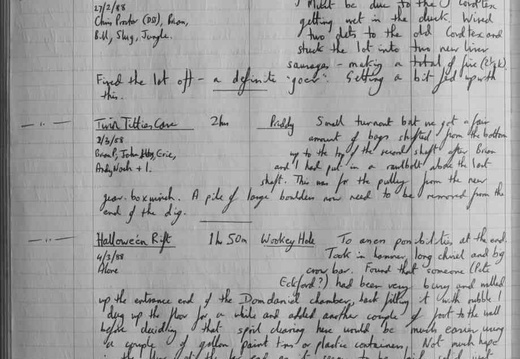 Must be due to the Cordtex
27/2/88 getting wet in the duck. Wired
Chris Proctor (DD), Brian, two dets to the old Cordtex and
Bill, Slug, Jungle. stuck the lot into two new liver
sausages - making a total of five (2½ lb).
Fired the lot off - a definite "goer". Getting a bit fed up with
this.
Twin Titties Cave 2hrs Priddy Small turnout but we got a fair
2/3/88 amount of bags shifted from the bottom
Brian P, John, Eric, up to the top of the second shaft after Brian
Andy, Nash + 1. and I had put in a rawlbolt above the last
shaft. This was for the pulley from the new
gear box winch. A pile of large boulders now need to be removed from the
end of the dig.
Halloween Rift 1h 50m Wookey Hole To assess possibilities at the end.
4/3/88 Took in hammer, long chisel and big
Alone crow bar. Found that someone (Pete
Eckford?) had been very busy and walled
up the entrance end of the Domdaniel chamber, back filling it with rubble!
I dug up the floor for a while and added another couple of foot to the wall
before deciding that spoil clearing here would be much easier using
a couple of gallon paint tins or plastic containers. Not much hope